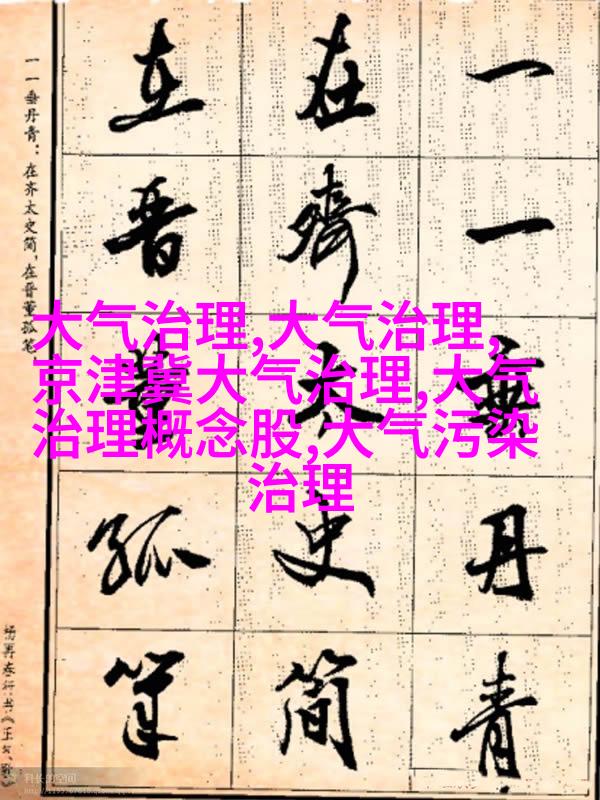 一一垂丹青
在齊太史簡
在晋董狐筆
一一垂丹青：在齐太史简，在晋董狐笔。
杨再春行书《正气
大气治理,大气治理,
京津冀大气治理,大气
治理概念股,大气污染
治理
科长的空间